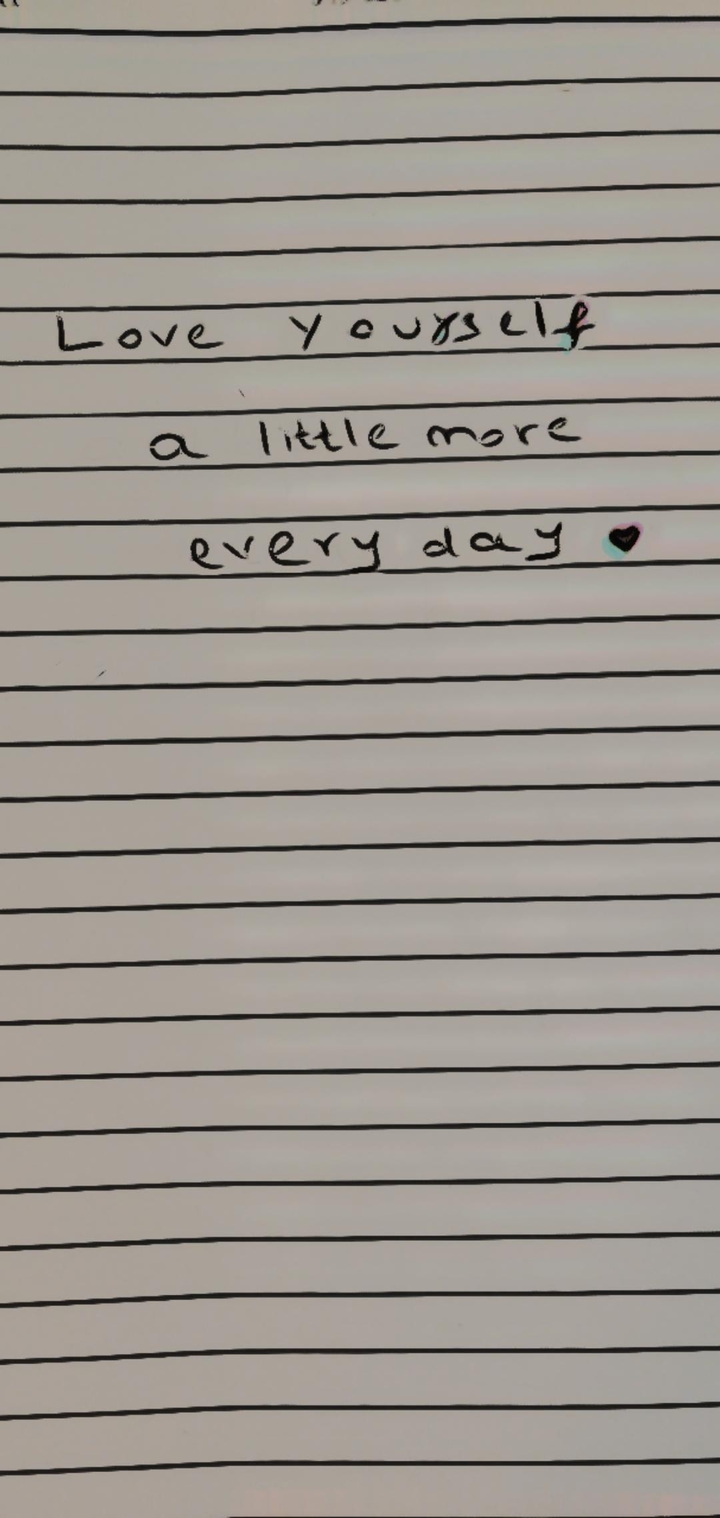 Love yourself
a little more
every day ♥